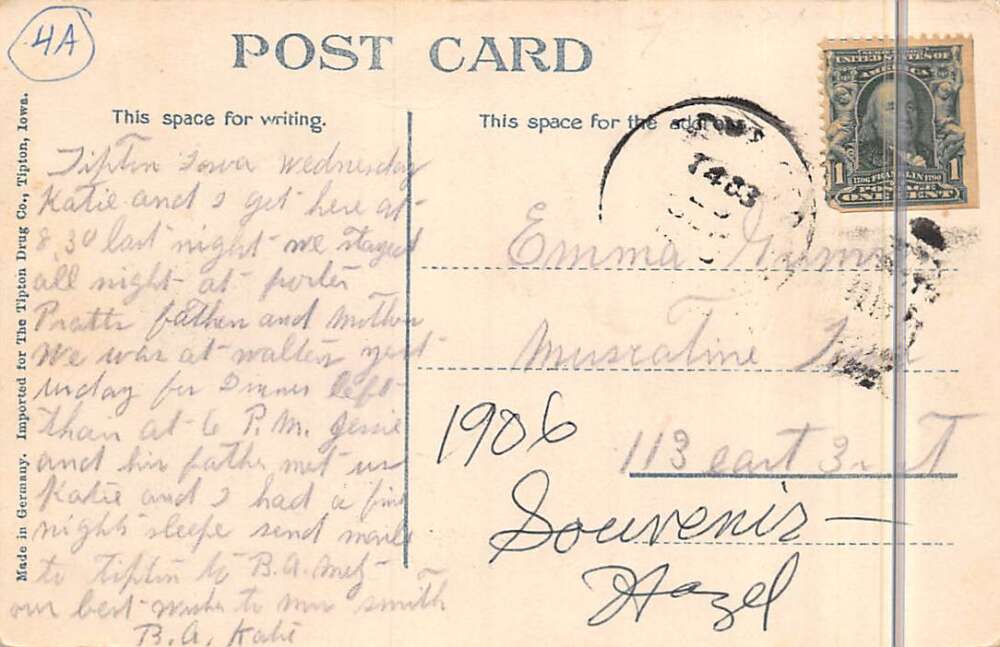 4A
POST CARD
This space for writing.
This space for the address
Made in Germany. Imported for The Tipton Drug Co., Tipton, Iowa.
Tipton Iowa Wednesday
Katie and I get here at
8,30 last night we stayed
all night at porter
Pratts father and Mother
We was at walters yest
urday for Dinner left
than at 6 P.M. Jessie
and his father met us
Katie and I had a fine
nights sleepe send maile
to Tipton to B.A. Metz
our best wishes to Mrs smith
B.A. Katie
UNITED STATES OF
AMERICA
1
1
1706 FRANKLIN 1790
POSTAGE
ONE CENT
Emma
Muscatine Iowa
113 east 3r ST
1906
Souvenir —
Hazel